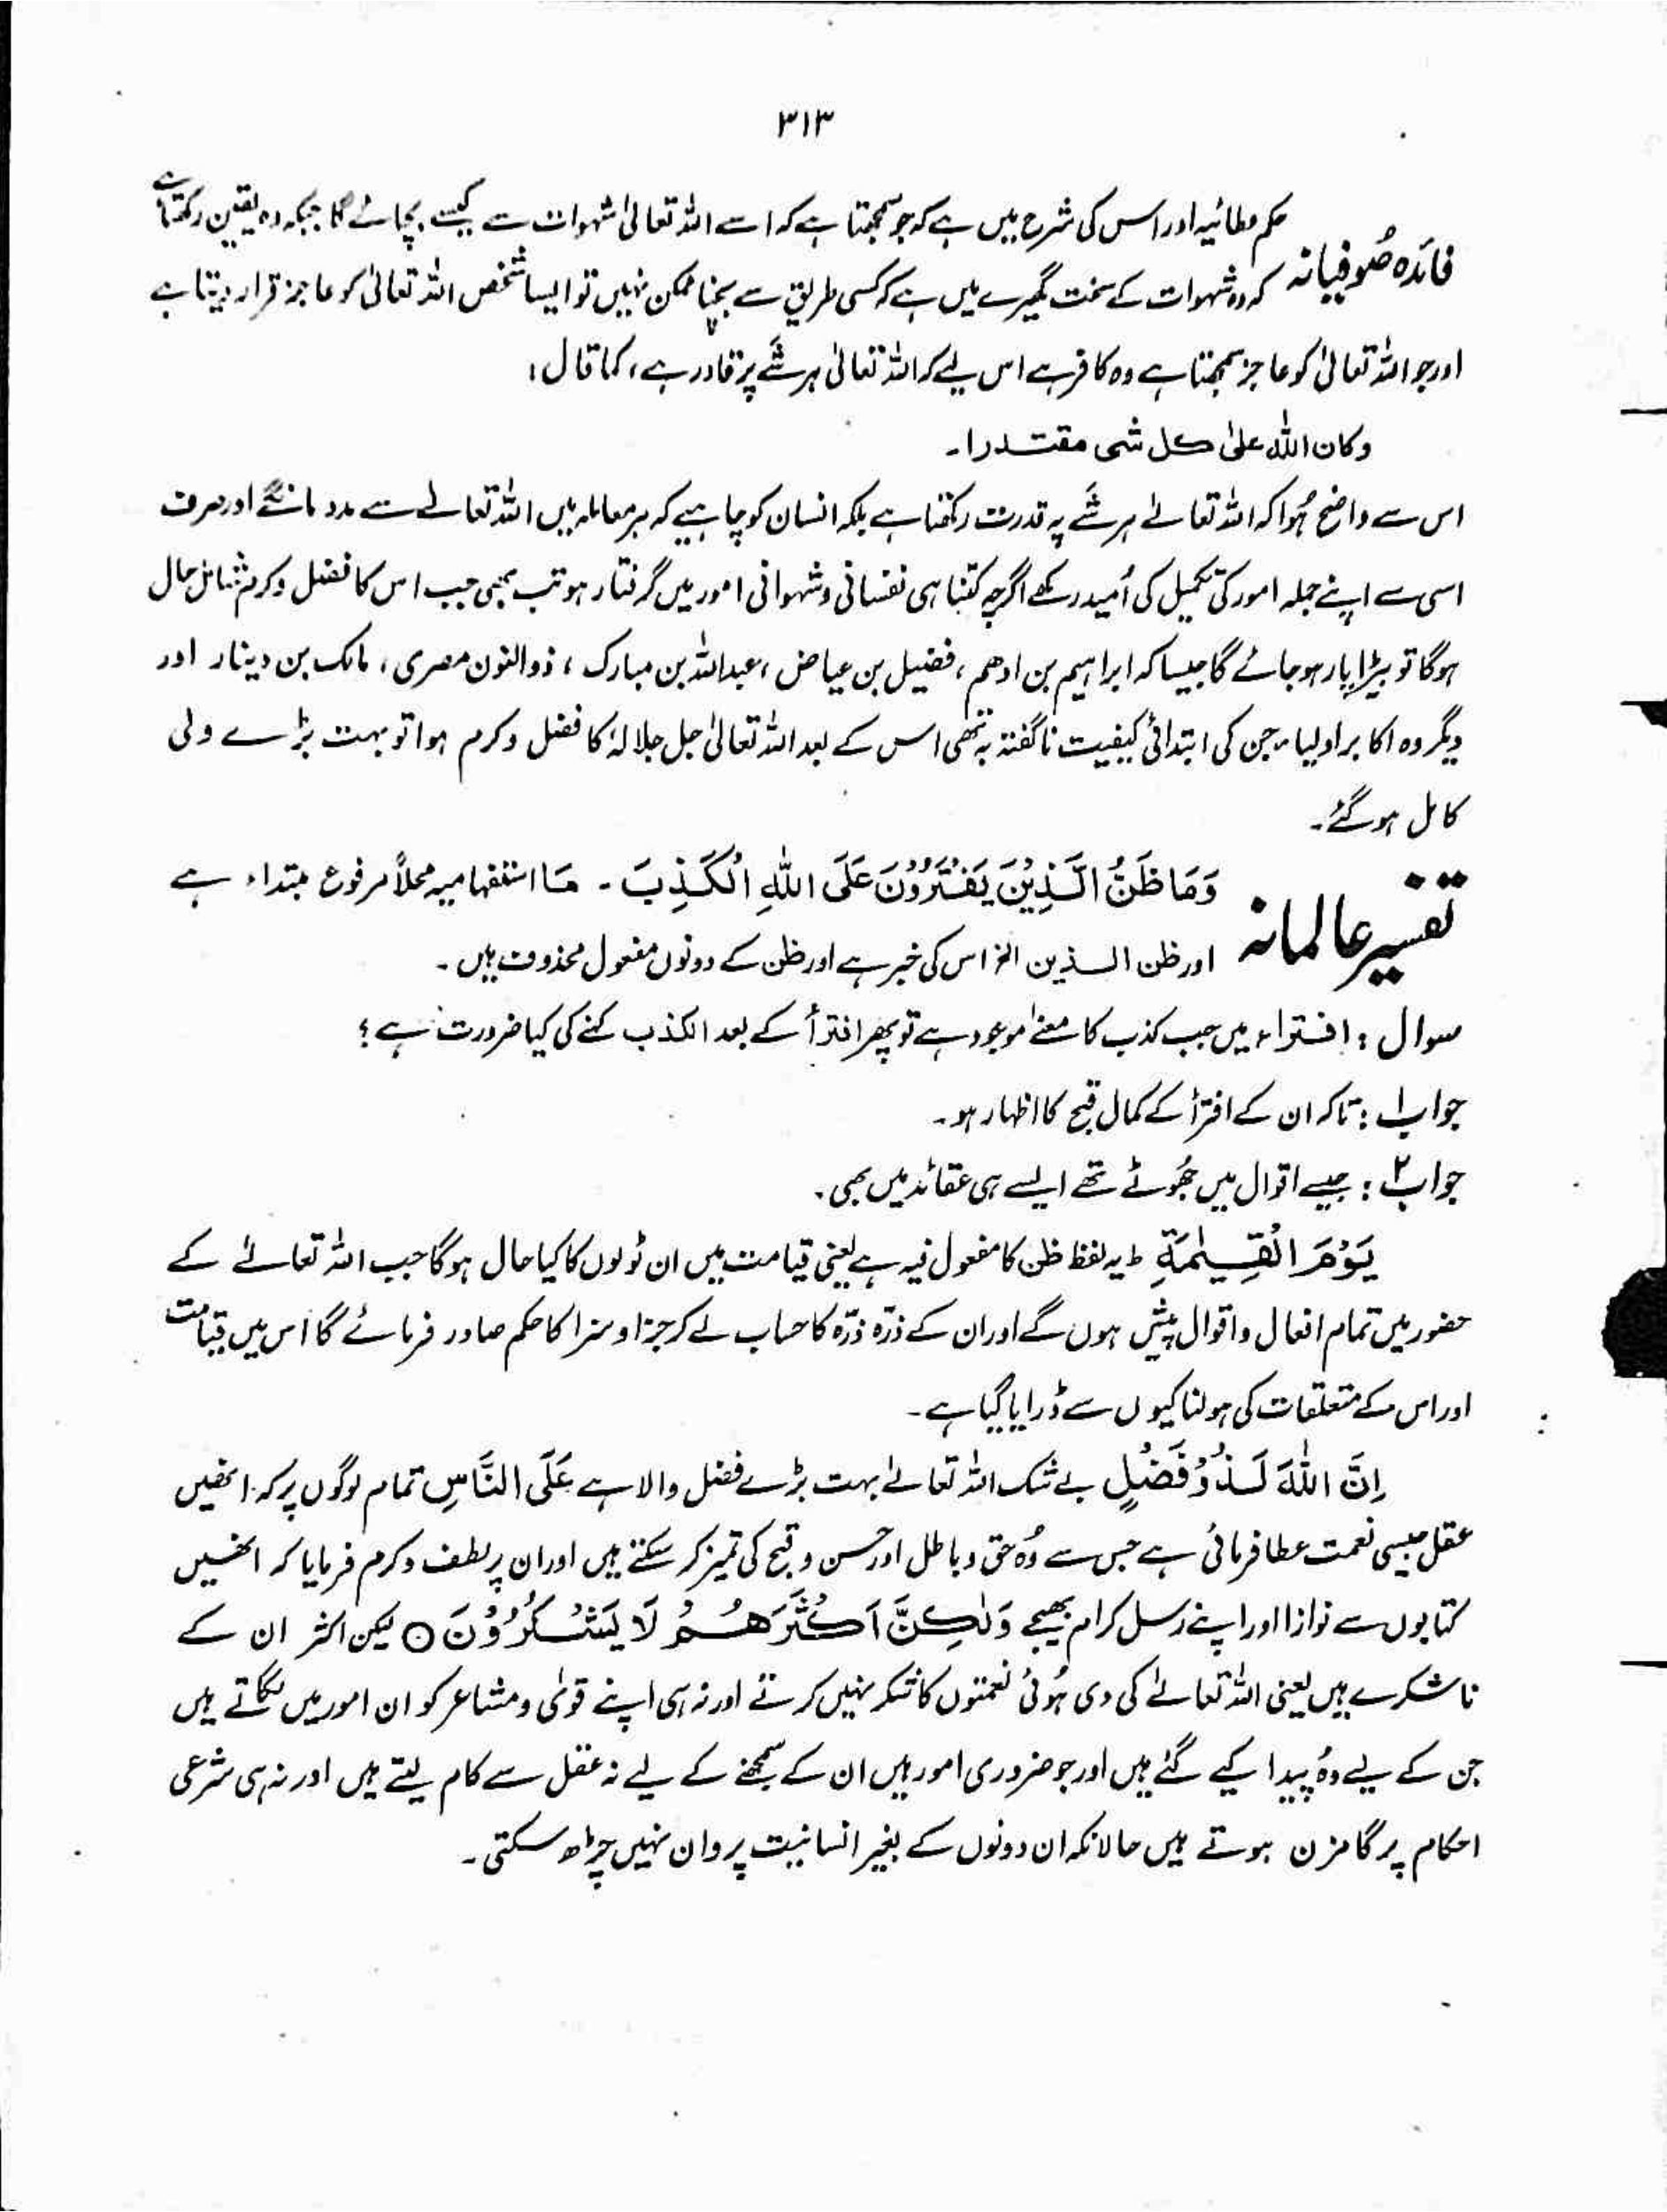 ۳۱۳
فائدہ صُوفیانہ
حکم عطائیہ اور اس کی شرح میں ہے کہ جو سمجھتا ہے کہ اسے اللہ تعالیٰ شہوات سے کیسے بچائے گا جبکہ وہ یقین رکھتا ہے
کہ وہ شہوات کے سخت گھیرے میں ہے کہ کسی طریق سے بچنا ممکن نہیں تو ایسا شخص اللہ تعالیٰ کو عاجز قرار دیتا ہے
اور جو اللہ تعالیٰ کو عاجز سمجھتا ہے وہ کافر ہے اس لیے کہ اللہ تعالیٰ ہر شَے پر قادر ہے، کما قال :
وکان اللہ علیٰ کل شی مقتدرا۔
اس سے واضح ہُوا کہ اللہ تعالےٰ ہر شَے پہ قدرت رکھتا ہے بلکہ انسان کو چاہیے کہ ہر معاملہ میں اللہ تعالےٰ سے مدد مانگے اور صرف
اسی سے اپنے جملہ امور کی تکمیل کی اُمید رکھے اگرچہ کتنا ہی نفسانی و شہوانی امور میں گرفتار ہو تب بھی جب اس کا فضل و کرم شامل حال
ہوگا تو بیڑا پار ہو جائے گا جیسا کہ ابراہیم بن ادھم، فضیل بن عیاض، عبداللہ بن مبارک، ذوالنون مصری، مالک بن دینار اور
دیگر وہ اکابر اولیاء جن کی ابتدائی کیفیت ناگفتہ بہ تھی اس کے بعد اللہ تعالیٰ جل جلالہٗ کا فضل و کرم ہوا تو بہت بڑے ولی
کامل ہوگئے۔
تفسیر عالمانہ
وَمَا ظَنُّ الَّذِيْنَ يَفْتَرُوْنَ عَلَى اللّٰهِ الْكَذِبَ ۔ مَا استفہامیہ محلاً مرفوع مبتداء ہے
اور ظن الذین الخ اس کی خبر ہے اور ظن کے دونوں مفعول محذوف ہیں۔
سوال : افتراء میں جب کذب کا معنےٰ موجود ہے تو پھر افترأ کے بعد الکذب کہنے کی کیا ضرورت ہے؟
جواب۱ : تاکہ ان کے افترأ کے کمال قبح کا اظہار ہو۔
جواب۲ : جیسے اقوال میں جُھوٹے تھے ایسے ہی عقائد میں بھی۔
يَوْمَ الْقِيٰمَةِ ؕ یہ لفظ ظن کا مفعول فیہ ہے یعنی قیامت میں ان ٹولوں کا کیا حال ہوگا جب اللہ تعالےٰ کے
حضور میں تمام افعال و اقوال پیش ہوں گے اور ان کے ذرّہ ذرّہ کا حساب لے کر جزا و سزا کا حکم صادر فرمائے گا اس میں قیامت
اور اس کے متعلقات کی ہولناکیوں سے ڈرایا گیا ہے۔
اِنَّ اللّٰهَ لَذُوْ فَضْلٍ بے شک اللہ تعالےٰ بہت بڑے فضل والا ہے عَلَى النَّاسِ تمام لوگوں پر کہ انھیں
عقل جیسی نعمت عطا فرمائی ہے جس سے وُہ حق و باطل اور حسن و قبح کی تمیز کر سکتے ہیں اور ان پر لطف و کرم فرمایا کہ انھیں
کتابوں سے نوازا اور اپنے رسل کرام بھیجے وَلٰكِنَّ اَكْثَرَهُمْ لَا يَشْكُرُوْنَ ۝ لیکن اکثر ان کے
ناشکرے ہیں یعنی اللہ تعالےٰ کی دی ہُوئی نعمتوں کا شکر نہیں کرتے اور نہ ہی اپنے قوٰی و مشاعر کو ان امور میں لگاتے ہیں
جن کے لیے وُہ پیدا کیے گئے ہیں اور جو ضروری امور ہیں ان کے سمجھنے کے لیے نہ عقل سے کام لیتے ہیں اور نہ ہی شرعی
احکام پر گامزن ہوتے ہیں حالانکہ ان دونوں کے بغیر انسانیت پروان نہیں چڑھ سکتی۔